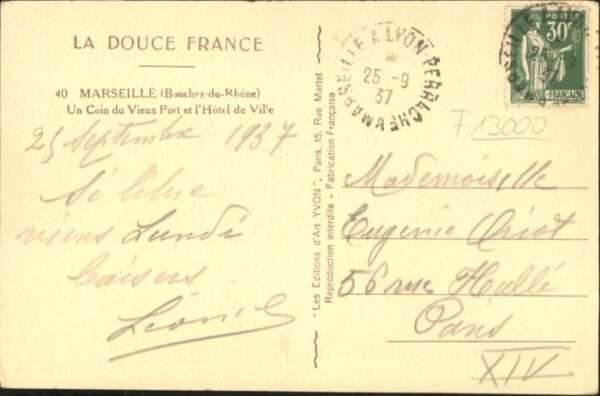 LA DOUCE FRANCE
40 MARSEILLE (Bouches-du-Rhône)
Un Coin du Vieux Port et l'Hôtel de Ville
25 Septembre 1937
viens Lundi
Baisers
"Les Editions d'Art YVON", Paris, 15, Rue Martel
Reproduction interdite - Fabrication Française
MARSEILLE A LYON-PERRACHE
25-9
37
POSTES
30c
F 13000
Mademoiselle
Eugénie
56 rue Hallé
Paris
XIV